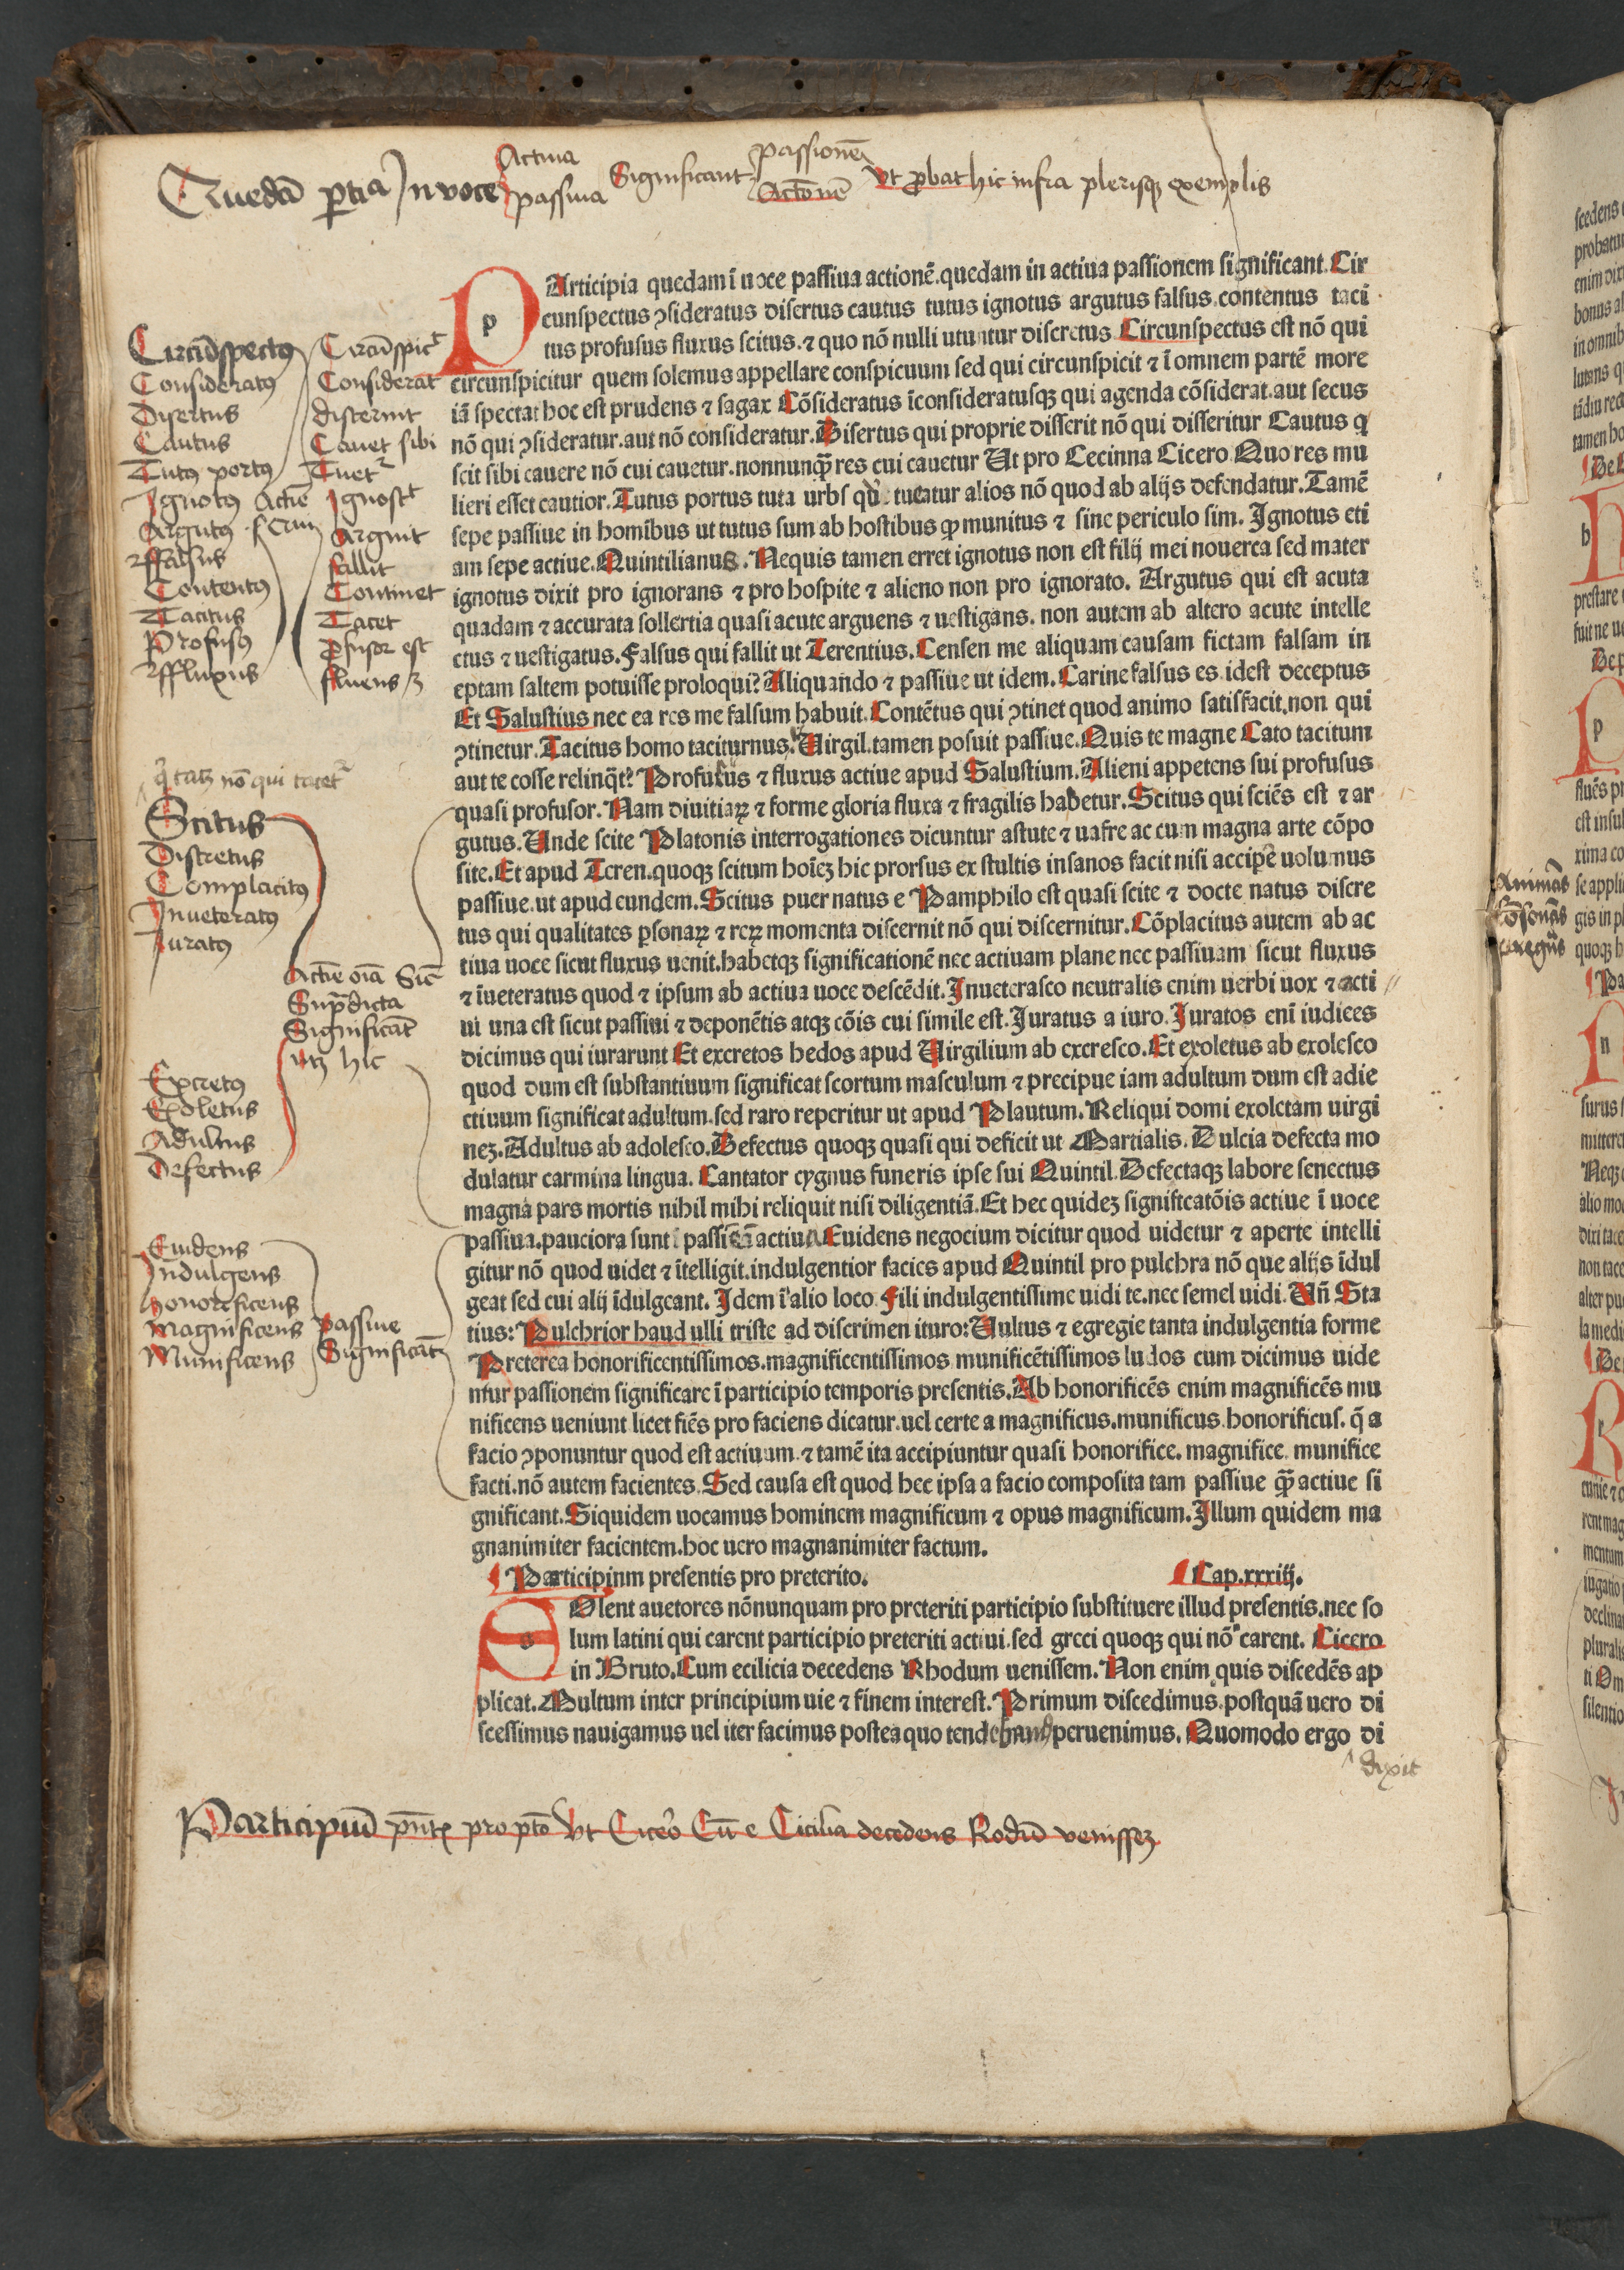 Quedã ptia In voce Actiua passiua Significant passionẽ Actõnẽ Vt pbat hic infra plerisqꝫ exemplis
PArticipia quedam ĩ uoce passiua actionẽ.quedam in actiua passionem significant.Cir
cunspectus ꝯsideratus disertus cautus tutus ignotus argutus falsus.contentus taci
tus profusus fluxus scitus.⁊ quo nõ nulli utuntur discretus Circunspectus est nõ qui
circunspicitur quem solemus appellare conspicuum sed qui circunspicit ⁊ ĩ omnem partẽ more
iã spectat hoc est prudens ⁊ sagax Cõsideratus ĩconsideratusqꝫ qui agenda cõsiderat.aut secus
nõ qui ꝯsideratur.aut nõ consideratur.Disertus qui proprie disserit nõ qui disseritur Cautus q
scit sibi cauere nõ cui cauetur.nonnunqꝫ res cui cauetur Ut pro Cecinna Cicero Quo res mu
lieri esset cautior.Tutus portus tuta urbs tueatur alios nõ quod ab alijs defendatur.Tamẽ
sepe passiue in homĩbus ut tutus sum ab hostibus ꝙ munitus ⁊ sine periculo sim. Ignotus eti
am sepe actiue.Quintilianus.Nequis tamen erret ignotus non est filij mei nouerca sed mater
ignotus dixit pro ignorans ⁊ pro hospite ⁊ alieno non pro ignorato. Argutus qui est acuta
quadam ⁊ accurata sollertia quasi acute arguens ⁊ uestigans. non autem ab altero acute intelle
ctus ⁊ uestigatus.Falsus qui fallit ut Terentius.Censen me aliquam causam fictam falsam in
eptam saltem potuisse proloqui?Aliquando ⁊ passiue ut idem.Carine falsus es idest deceptus
Et Salustius nec ea res me falsum habuit.Contẽtus qui ꝯtinet quod animo satisfacit.non qui
ꝯtinetur.Tacitus homo taciturnus.Virgil.tamen posuit passiue.Quis te magne Cato tacitum
aut te cosse relinq̃t?Profusus ⁊ fluxus actiue apud Salustium.Alieni appetens sui profusus
quasi profusor.Nam diuitiaꝝ ⁊ forme gloria fluxa ⁊ fragilis habetur.Scitus qui sciẽs est ⁊ ar
gutus.Unde scite Platonis interrogationes dicuntur astute ⁊ uafre ac cum magna arte cõpo
site.Et apud Teren.quoqꝫ scitum hoĩeꝫ hic prorsus ex stultis insanos facit nisi accipẽ uolumus
passiue.ut apud eundem.Scitus puer natus e Pamphilo est quasi scite ⁊ docte natus discre
tus qui qualitates ꝑsonaꝝ ⁊ reꝝ momenta discernit nõ qui discernitur.Cõplacitus autem ab ac
tiua uoce sicut fluxus uenit.habetqꝫ significationẽ nec actiuam plane nec passiuam sicut fluxus
⁊ ĩueteratus quod ⁊ ipsum ab actiua uoce descẽdit.Inueterasco neutralis enim uerbi uox ⁊ acti
ui una est sicut passiui ⁊ deponẽtis atqꝫ cõis cui simile est.Juratus a iuro.Juratos enĩ iudices
dicimus qui iurarunt Et excretos hedos apud Virgilium ab excresco.Et exoletus ab exolesco
quod dum est substantiuum significat scortum masculum ⁊ precipue iam adultum dum est adie
ctiuum significat adultum.sed raro reperitur ut apud Plautum.Reliqui domi exoletam uirgi
neꝫ.Adultus ab adolesco.Defectus quoqꝫ quasi qui deficit ut Martialis.Dulcia defecta mo
dulatur carmina lingua. Cantator cygnus funeris ipse sui Quintil.Defectaqꝫ labore senectus
magna pars mortis nihil mihi reliquit nisi diligentiã.Et hec quideꝫ significatõis actiue ĩ uoce
passiua.pauciora sunt actiua Euidens negocium dicitur quod uidetur ⁊ aperte intelli
gitur nõ quod uidet ⁊ ĩtelligit.indulgentior facies apud Quintil pro pulchra nõ que alijs ĩdul
geat sed cui alij ĩdulgeant. Idem ĩ alio loco Fili indulgentissime uidi te.nec semel uidi.Uñ Sta
tius:Pulchrior haud ulli triste ad discrimen ituro:Vultus ⁊ egregie tanta indulgentia forme
Preterea honorificentissimos.magnificentissimos munificẽtissimos ludos cum dicimus uide
ntur passionem significare ĩ participio temporis presentis.Ab honorificẽs enim magnificẽs mu
nificens ueniunt licet fiẽs pro faciens dicatur.uel certe a magnificus.munificus.honorificus.q̃ a
facio ꝯponuntur quod est actiuum.⁊ tamẽ ita accipiuntur quasi honorifice.magnifice.munifice
facti.nõ autem facientes.Sed causa est quod hec ipsa a facio composita tam passiue qꝫ actiue si
gnificant.Siquidem uocamus hominem magnificum ⁊ opus magnificum.Illum quidem ma
gnanimiter facientem.hoc uero magnanimiter factum.
Participinm presentis pro preterito. Cap.xxxiiij.
SOlent auctores nõnunquam pro preteriti participio substituere illud presentis.nec so
lum latini qui carent participio preteriti actiui.sed greci quoqꝫ qui nõ carent. Cicero
in Bruto.Cum ecilicia decedens Rhodum uenissem.Non enim quis discedẽs ap
plicat.Multum inter principium uie ⁊ finem interest.Primum discedimus.postquã uero di
scessimus nauigamus uel iter facimus postea quo tendebamus peruenimus. Quomodo ergo di
dixit
Participiũ pñtꝭ pro pto Vt Cicero Cũ e Cicilia decedens Rodũ venisseꝫ
Circũspectus Circũspicit
Consideratus Considerat
Disertus disserint
Cautus Cauet sibi
Tutus portus Tuet
Ignotus Actiẽ Ignoscit
Argutus Arguit
ffalsus fallit
Contentus Continet
Tacitus Tacet
Profusus pfusor est
ffluxus fluens
nõ qui tacet
Scitus
Discretus
Complacitus
Inueteratus
Juratus
Actiẽ oĩa Sic
Supradicta
Significãt
hic
Excretus
Exoletus
Adultus
Defectus
Euidens
Indulgens
honorificens
Magnificens passiue
Munificens Significãt
Animãs